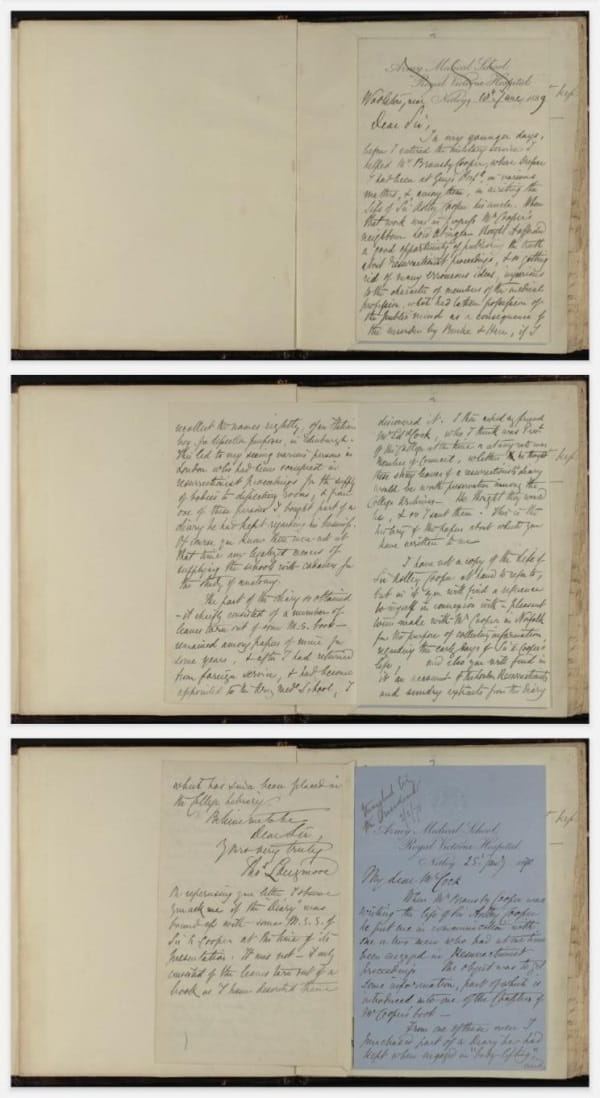 Army Medical School,
Royal Victoria Hospital
Woolston, near Netley, June 1889
Dear Sir,
In my younger days,
before I entered the military service I
helped Mr Bransby Cooper, whose dresser
I had been at Guy's Hospl, in various
matters, & among them, in writing the
life of Sir Astley Cooper his uncle. When
that work was in progress Mr Cooper's
neighbour thought it afforded
a good opportunity of publishing the truth
about resurrectionist proceedings, & so getting
rid of many erroneous ideas, injurious
to the character of members of the medical
profession, which had taken possession of
the public mind as a consequence of
the murder by Burke & Hare, if I
recollect the names rightly, of an Italian
boy, for dissection purposes, in Edinburgh.
This led to my seeing various persons in
London who had been occupied in
resurrectionist proceedings for the supply
of bodies to dissecting rooms, & from
one of these persons I bought part of a
diary he had kept regarding his business.
Of course you know there was not at
that time any legalized means of
supplying the schools with cadavers for
the study of anatomy.
The part of the diary so obtained
- it chiefly consisted of a number of
leaves torn out of some M.S. book -
remained among papers of mine for
some years, & after I had returned
from foreign service, & had become
appointed to the Army Medl School, I
discovered it. I then asked my friend
Mr Edwd Cock, who I think was Presdt
of the College at the time or at any rate was
Member of Council, whether he thought
these stray leaves of a resurrectionist's diary
would be worth preservation among the
College Archives - He thought they would
be, & so I sent them. This is the
history of the papers about which you
have written to me.
I have not a copy of the Life of
Sir Astley Cooper at hand to refer to,
but in it you will find a reference
to myself in connexion with a pleasant
tour made with Mr Cooper in Norfolk
for the purpose of collecting information
regarding the early days of Sir A Cooper's
life, and also you will find in
it an account of the London Resurrectionists
and sundry extracts from the diary
which has since been placed in
the College Library.
Believe me to be
Dear Sir,
Yours very truly
Thos Longmore
On reperusing your letter I observe
you ask me if the Diary was
bound up with some M.S.S. of
Sir A Cooper at the time of its
presentation. It was not - It only
consisted of the leaves torn out of a
book as I have described them
Army Medical School,
Royal Victoria Hospital,
Netley 25 1890
My dear Mr Cock
When Mr Bransby Cooper was
writing the life of Sir Astley Cooper
he put me in communication with
one or two men who had at one time
been engaged in Resurrectionist
proceedings. The object was to get
some information, part of which is
introduced into one of the Chapters of
Mr Cooper's book -
From one of these men I
purchased part of a Diary he had
kept when engaged in "body-lifting",